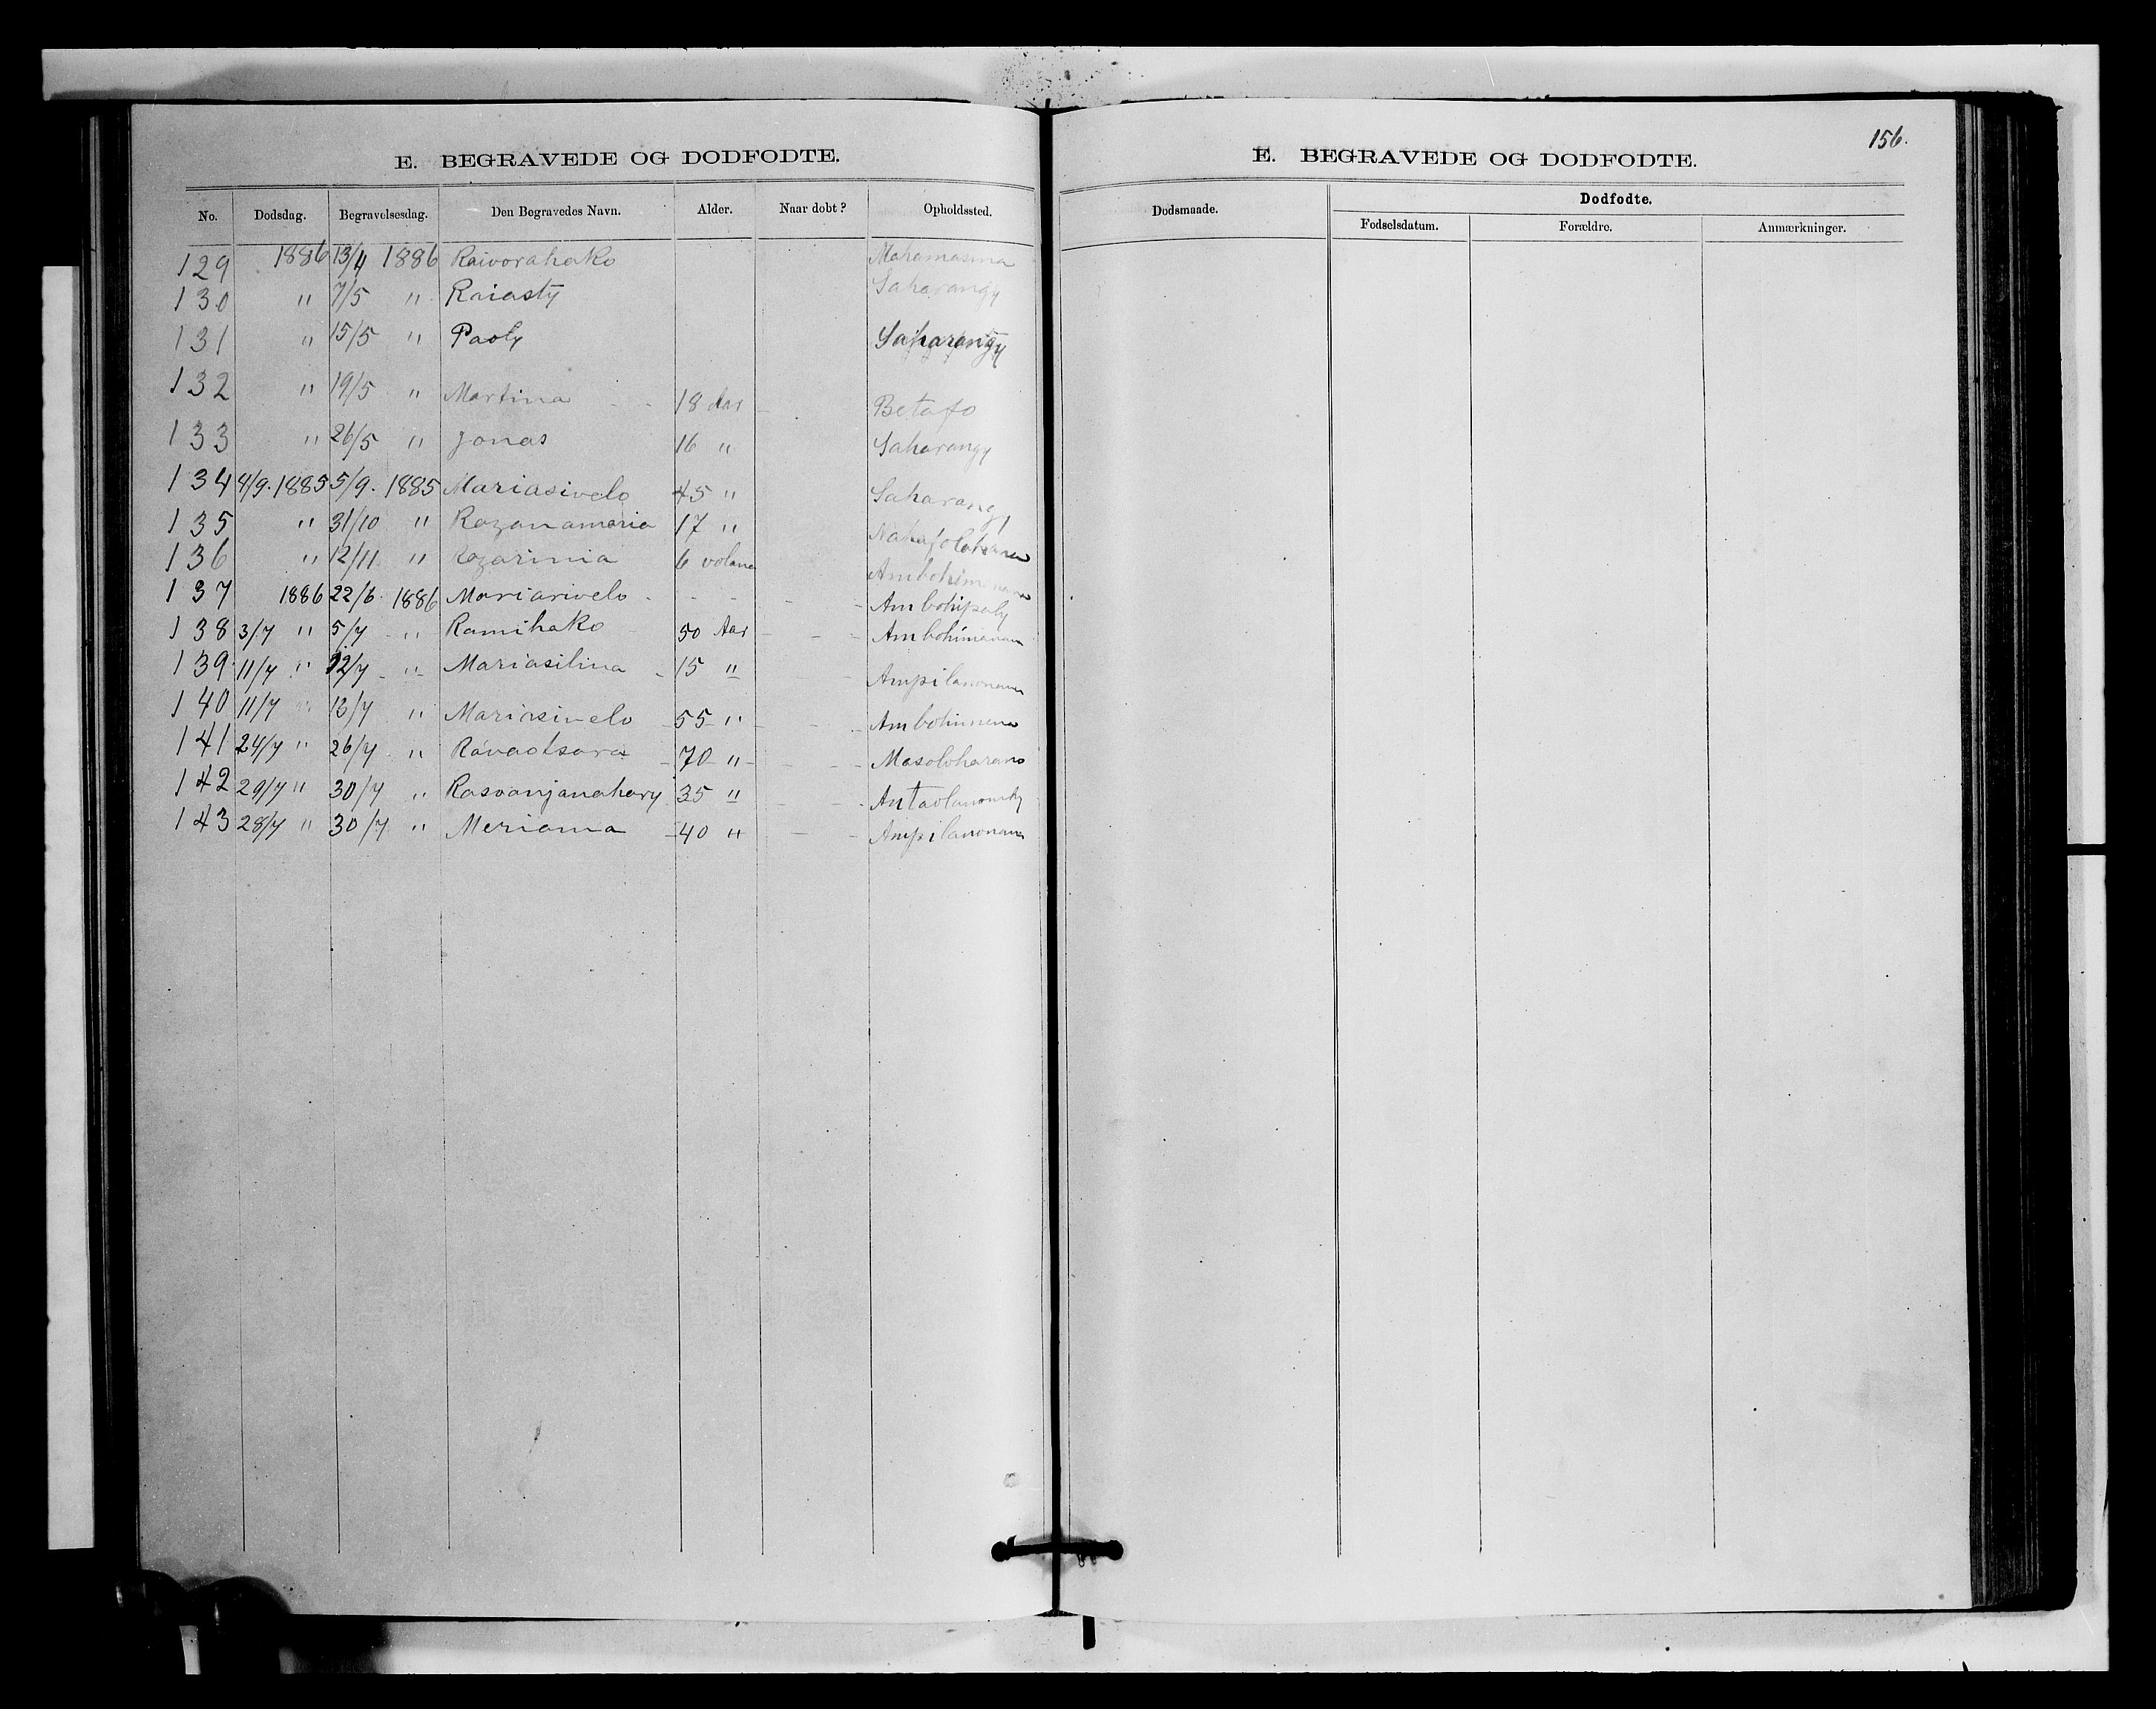 E. BEGRAVEDE OG DODFODTE.
No. Dodsdag. Begravelsesdag. Den Begravedes Navn. Alder. Naar dobt? Opholdssted.
129 1886 13/4 1886 Raivorahako Mahamasina
130 " 7/5 " Raiasty Saharangy
131 " 15/5 " Paoly Saharangy
132 " 19/5 " Martina 18 Aar Betafo
133 " 26/5 " Jonas 16 " Saharangy
134 4/9. 1885 5/9. 1885 Mariasivelo 45 " Saharangy
135 " 31/10 " Razanamaria 17 "
136 " 12/11 " Rozarinia 6 volana
137 1886 22/6 1886 Mariarivelo - Ambohipoly
138 3/7 " 5/7 " Ramihako 50 Aar Ambohimanana
139 11/7 " 12/7 " Mariasilina 15 " Ampilanonana
140 11/7 " 13/7 " Mariasivelo 55 " Ambohimena
141 24/7 " 26/7 " Ravaotsara 70 " Masoloharano
142 29/7 " 30/7 " Rasoanjanahary 35 "
143 28/7 " 30/7 " Meriama 40 " Ampilanonana
156.
E. BEGRAVEDE OG DODFODTE.
Dodsmaade. Dodfodte.
Fodselsdatum. Forældre. Anmærkninger.